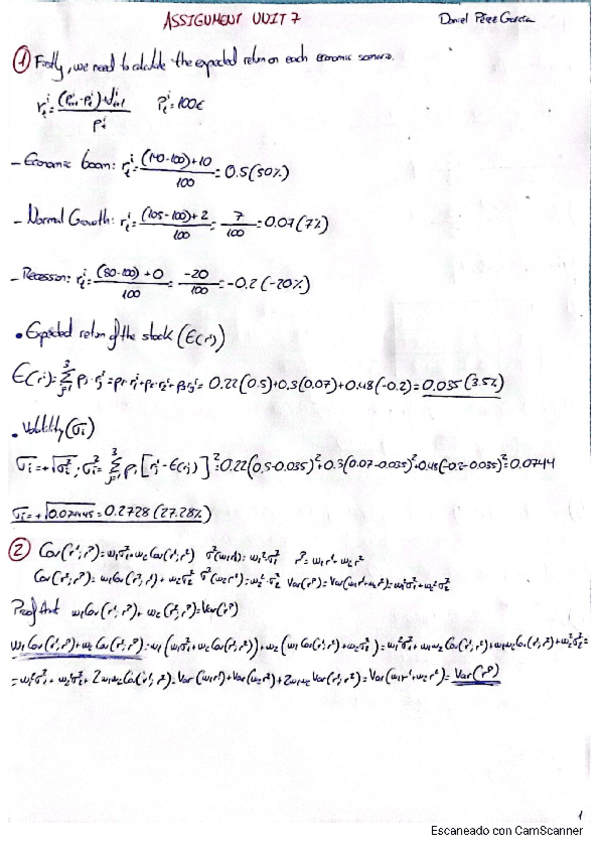 ASSIGNMENT UNIT 7
Daniel Pérez García
① Firstly, we need to calculate the expected return on each economic scenario.
r_t^i = ((P_{t+1}^i - P_t^i) + d_{t+1}^i) / P_t^i    P_t^i = 100€
- Economic boom: r_t^i = ((140-100)+10) / 100 = 0.5 (50%)
- Normal Growth: r_t^i = ((105-100)+2) / 100 = 7 / 100 = 0.07 (7%)
- Recession: r_t^i = ((80-100)+0) / 100 = -20 / 100 = -0.2 (-20%)
• Expected return of the stock (E(r^i))
0.22(0.5)+0.3(0.07)+0.48(-0.2) = 0.035 (3.5%)
• Volatility (σ_i)
= 0.22(0.5-0.035)²+0.3(0.07-0.035)²+0.48(-0.2-0.035)² = 0.0744
σ_i = +√0.07445 = 0.2728 (27.28%)
② Cov(r¹, r^p) = w₁σ₁²+w₂Cov(r¹, r²)    σ²(w₁r¹) = w₁²σ₁²    r^p = w₁r¹+w₂r²
Cov(r², r^p) = w₁Cov(r¹, r²)+w₂σ₂²    σ²(w₂r²) = w₂²·σ₂²    Var(r^p) = Var(w₁r¹+w₂r²) = w₁²σ₁²+w₂²σ₂²
Proof that w₁Cov(r¹, r^p)+w₂Cov(r², r^p) = Var(r^p)
w₁Cov(r¹, r^p)+w₂Cov(r², r^p) = w₁(w₁σ₁²+w₂Cov(r¹, r²))+w₂(w₁Cov(r¹, r²)+w₂σ₂²) = w₁²σ₁²+w₁w₂Cov(r¹, r²)+w₁w₂Cov(r¹, r²)+w₂²σ₂² =
= w₁²σ₁²+w₂²σ₂²+2w₁w₂Cov(r¹, r²) = Var(w₁r¹)+Var(w₂r²)+2w₁w₂Var(r¹, r²) = Var(w₁r¹+w₂r²) = Var(r^p)
1
Escaneado con CamScanner